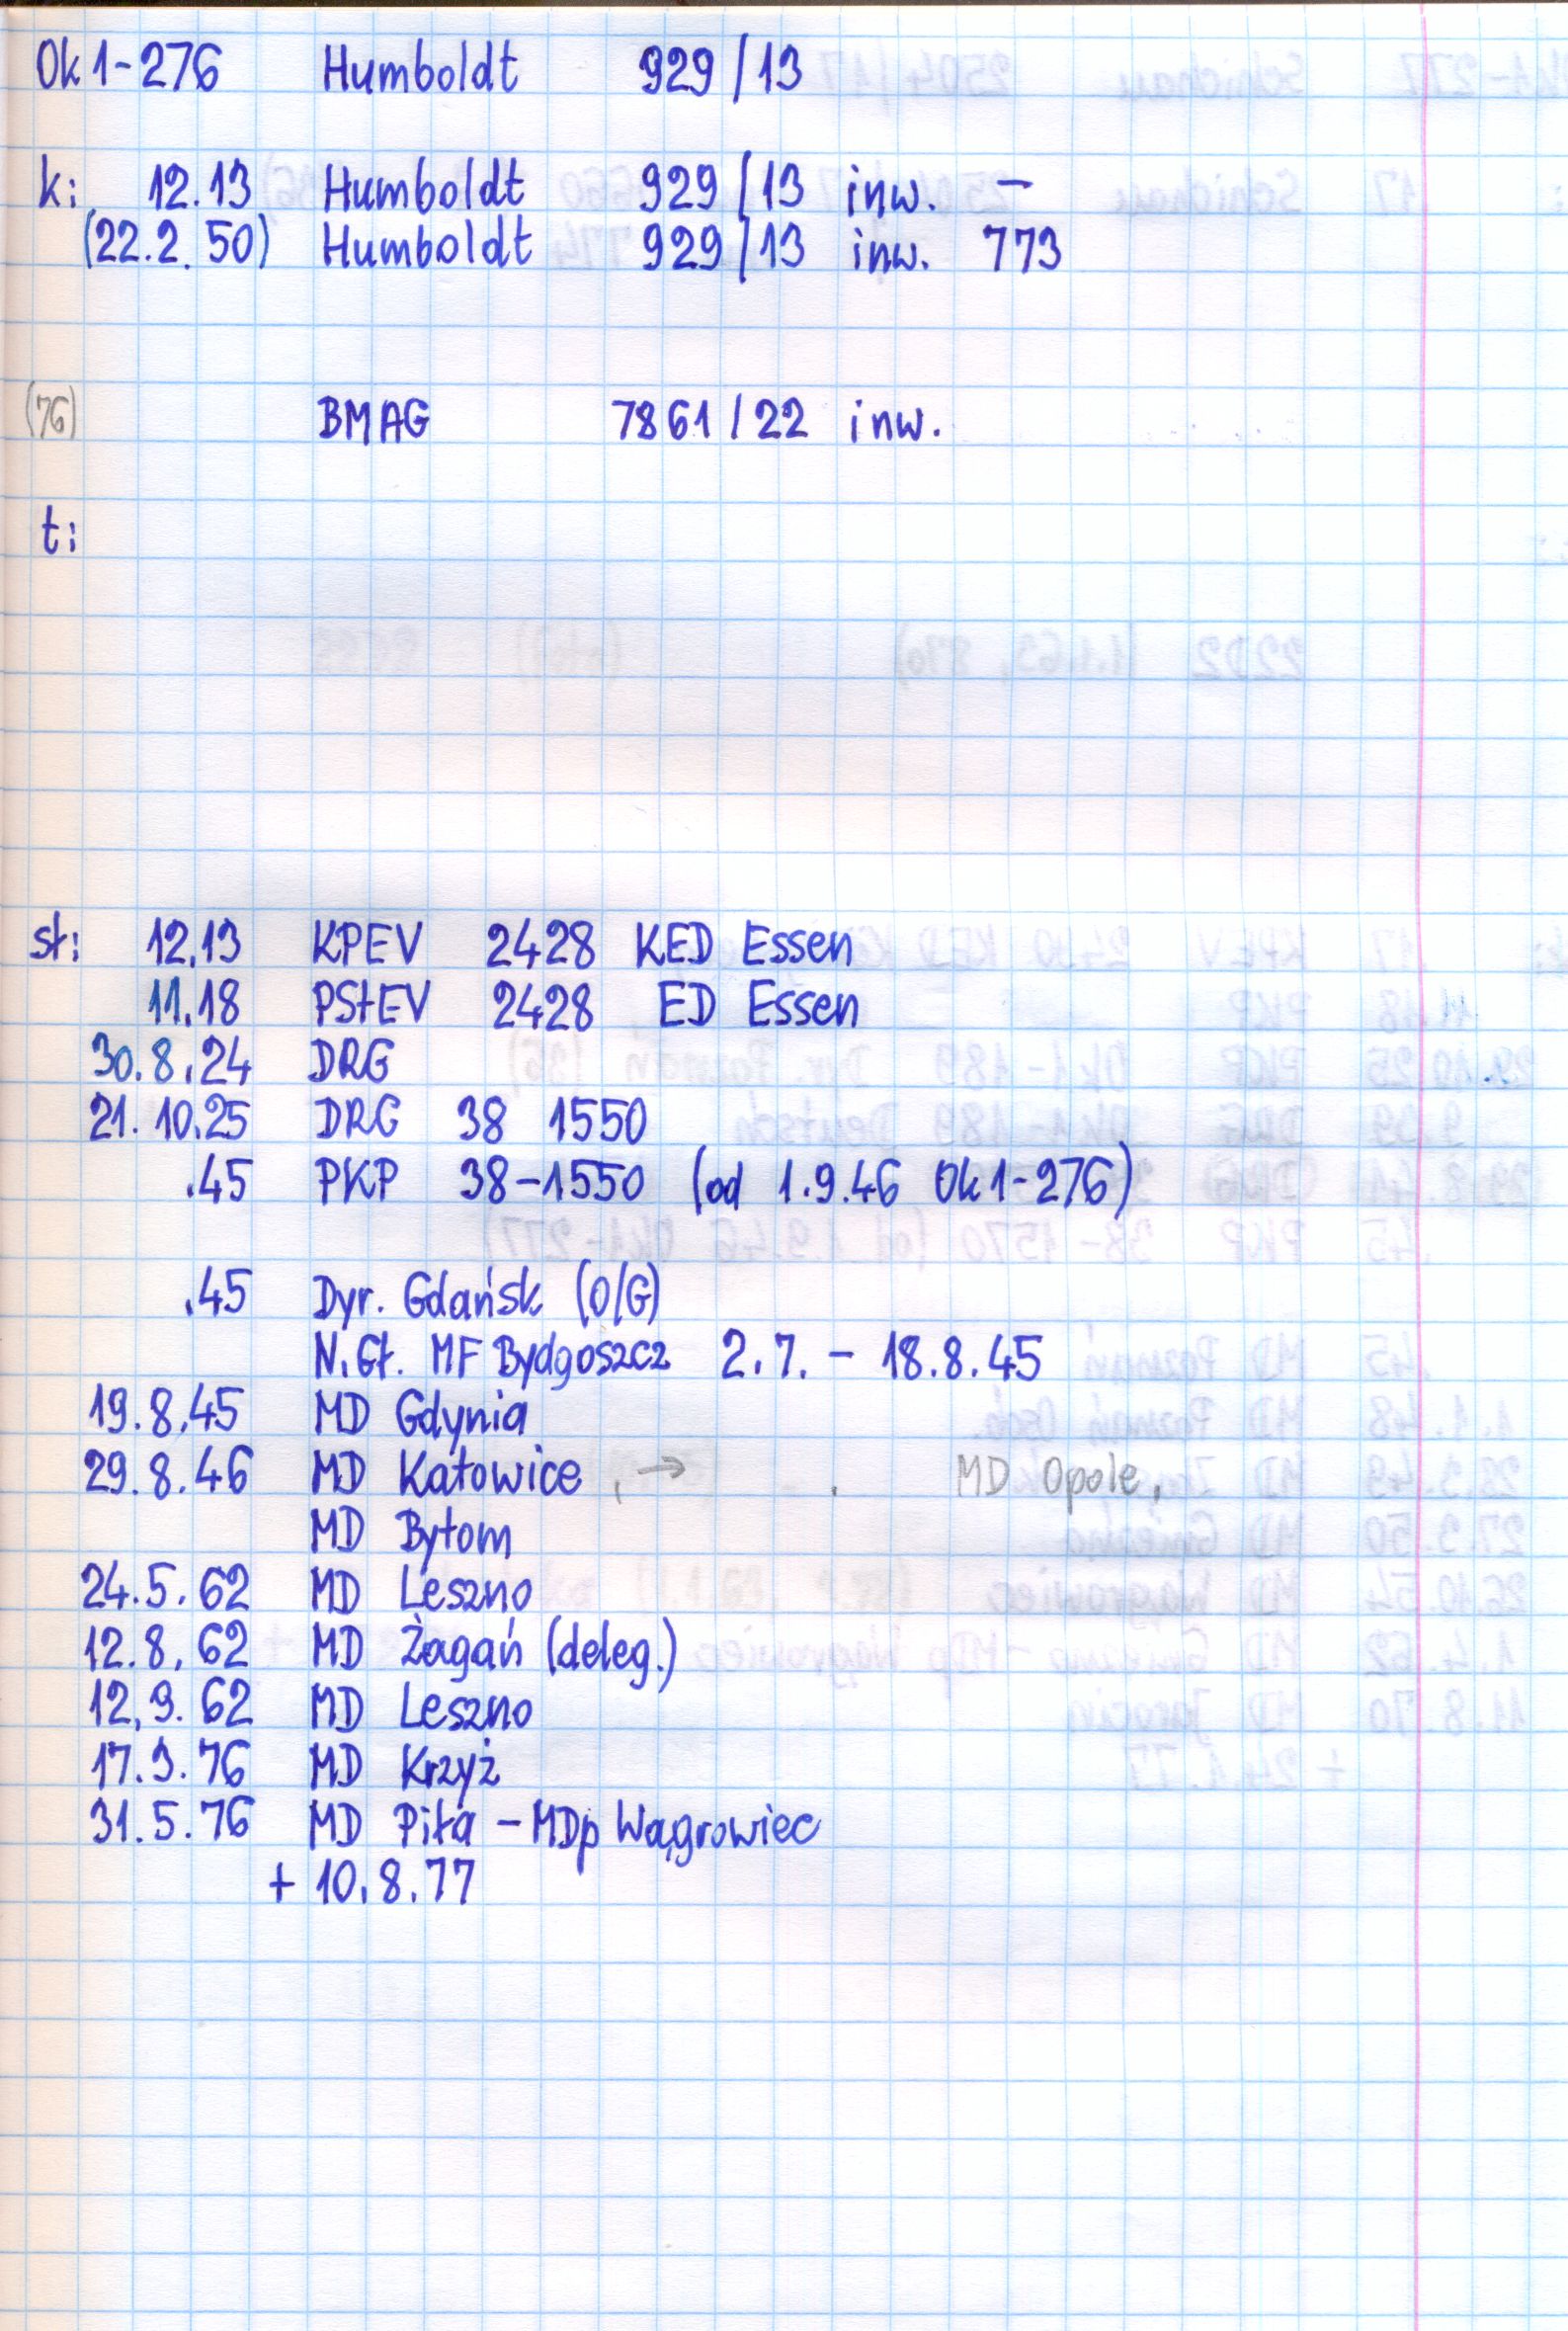 Ok1-276 Humboldt 929/13
k: 12.13 Humboldt 929/13 inw. –
(22.2.50) Humboldt 929/13 inw. 773
(76) BMAG 7861/22 inw.
t:
st: 12.13 KPEV 2428 KED Essen
11.18 PStEV 2428 ED Essen
30.8.24 DRG
21.10.25 DRG 38 1550
.45 PKP 38-1550 (od 1.9.46 Ok1-276)
.45 Dyr. Gdańsk (O/G)
N.Gł. MF Bydgoszcz 2.7. – 18.8.45
19.8.45 MD Gdynia
29.8.46 MD Katowice, → MD Opole,
MD Bytom
24.5.62 MD Leszno
12.8.62 MD Żagań (deleg.)
12.9.62 MD Leszno
17.3.76 MD Krzyż
31.5.76 MD Piła – MDp Wągrowiec
+ 10.8.77